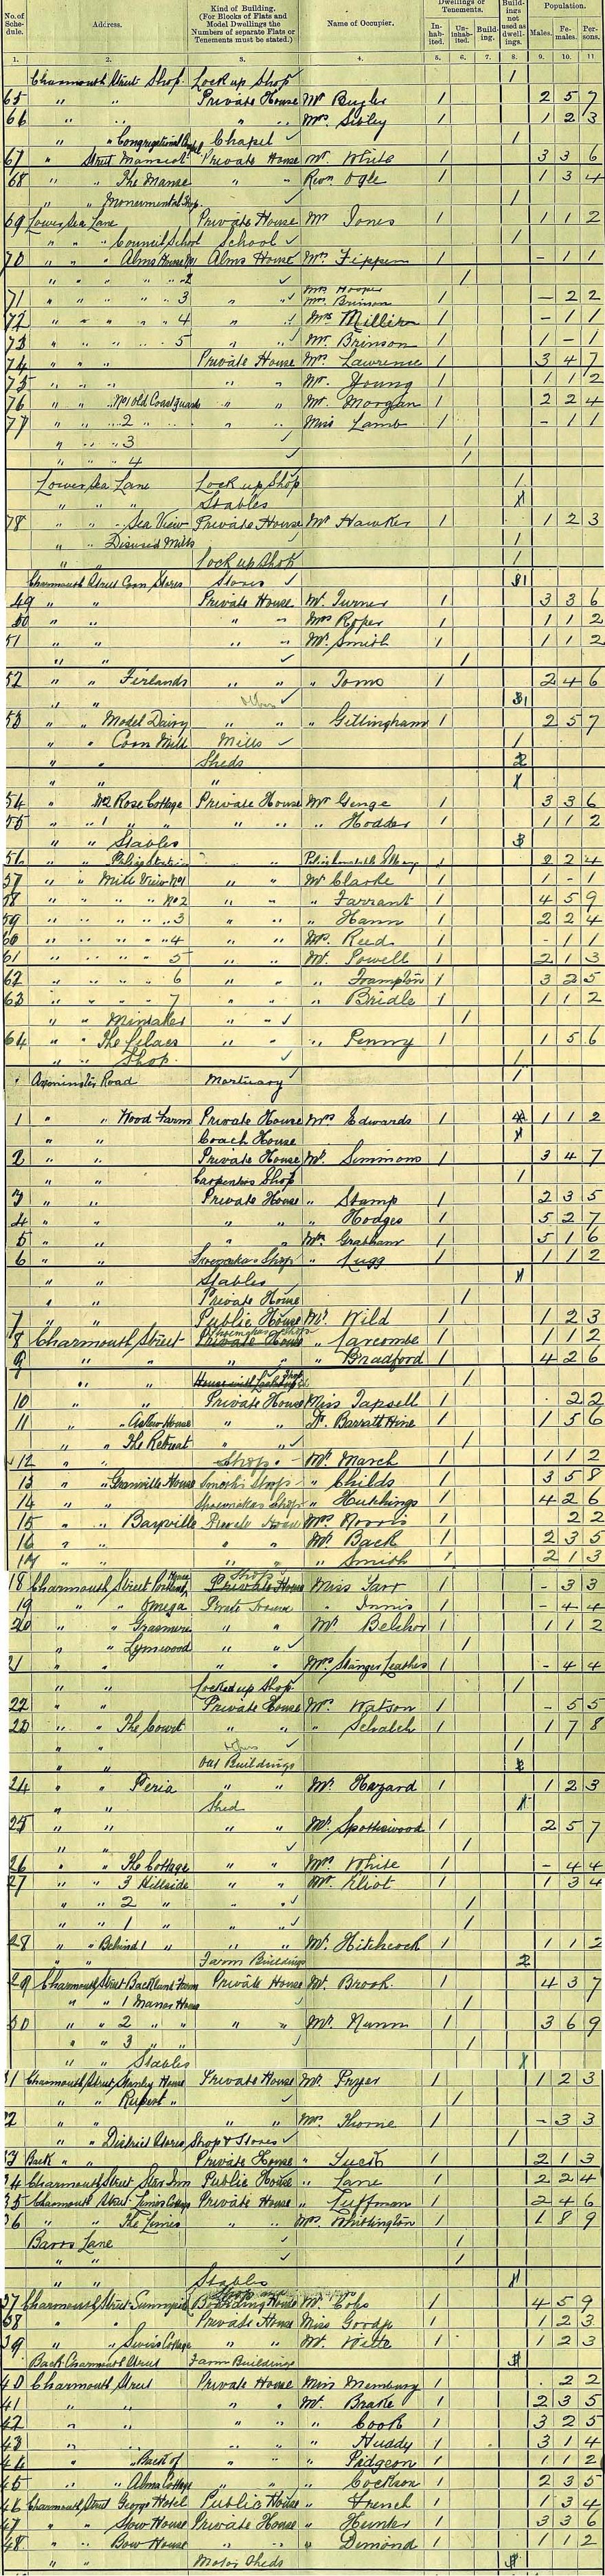 No. of Schedule. Address. Kind of Building. (For Blocks of Flats and Model Dwellings the Numbers of separate Flats or Tenements must be stated.) Name of Occupier. Dwellings or Tenements. Inhabited. Uninhabited. Building. Buildings not used as dwellings. Population. Males. Females. Persons.
1. 2. 3. 4. 5. 6. 7. 8. 9. 10. 11.
Charmouth Street Shop. Lock up Shop 1
65 " " Private House Mr Bugler 1 2 5 7
66 " " " " Mrs. Sibley 1 1 2 3
" " Congregational Chapel Chapel 1
67 " Street Private House Mr. White 1 3 3 6
68 " " The Manse " " Revn Ogle 1 1 3 4
" " Monumental Shop. 1
69 Lower Sea Lane Private House Mr Jones 1 1 1 2
" " " Council School School 1
70 " " " Alms House No 1 Alms House Mrs. 1 - 1 1
" " " " " 2 1
71 " " " " " 3 " " Mrs Hooper Mrs. Brinson 1 - 2 2
72 " " " " " 4 " " Mrs 1 - 1 1
73 " " " " " 5 " " Mr. Brinson 1 1 - 1
74 " " " Private House Mrs Lawrence 1 3 4 7
75 " " " " " Mr. Young 1 1 1 2
76 " " " No 1 Old Coastguard " " Mr. Morgan 1 2 2 4
77 " " " 2 " " " " Miss Lamb 1 - 1 1
" " " 3 1
" " " 4 1
Lower Sea Lane Lock up Shop 1
" " " Stables
78 " " " Sea View Private House Mr Hawker 1 1 2 3
" " Disused Mills 1
" " Lock up Shop 1
Charmouth Street Corn Stores Stores 1
49 " " Private House Mr. Turner 1 3 3 6
50 " " " " Mrs Roper 1 1 1 2
51 " " " " Mr. Smith 1 1 1 2
" " 1
52 " " Firlands " " " Toms 1 2 4 6
" " Others 1
53 " " Model Dairy " " " Gillingham 1 2 5 7
" " Corn Mill Mills 1
" " Sheds 2
" " "
54 " No 2 Rose Cottage Private House Mr Genge 1 3 3 6
55 " " 1 " " " " " Hodder 1 1 1 2
" " Stables
56 " " Police Station " " Police Constable 1 2 2 4
57 " " Mill View No 1 " " Mr Clarke 1 1 - 1
58 " " " " No 2 " " " Farrant 1 4 5 9
59 " " " " " 3 " " " Hann 1 2 2 4
60 " " " " " 4 " " Mrs. Reed 1 - 1 1
61 " " " " 5 " " Mr. Powell 1 2 1 3
62 " " " " 6 " " " Frampton 1 3 2 5
63 " " " " 7 " " " Bridle 1 1 1 2
" " " " 1
64 " " The Lilacs " " " Penny 1 1 5 6
" " Shop. 1
Axminster Road Mortuary 1
1 " " Wood Farm Private House Mrs Edwards 1 1 1 2
" " Coach House
2 " " Private House Mr. Simmons 1 3 4 7
" " Carpenters Shop 1
3 " " Private House " Stamp 1 2 3 5
4 " " " " " Hodges 1 5 2 7
5 " " " " Mr. Grabham 1 5 1 6
6 " " Shop " Lugg 1 1 1 2
" " Stables
" " Private House 1
7 " " Public House Mr. Wild 1 1 2 3
8 Charmouth Street Shoemakers Shop Private House " Larcombe 1 1 1 2
9 " " " " " Bradford 1 4 2 6
" " House with Shop 1
10 Private House Miss Tapsell 1 . 2 2
11 " " Askew House " " Dr. Barratt Hine 1 1 5 6
" " The Retreat " " 1
12 " " Shop. Mr. March 1 1 1 2
13 " " Granville House Shop " Childs 1 3 5 8
14 " " Shoemakers Shop " Hutchings 1 4 2 6
15 " " Bayville Private House Mrs. Norris 1 2 2
16 " " " " Mr. Back 1 2 3 5
17 " " " " " Smith 1 2 1 3
18 Charmouth Street Portland House Shop Private House Miss Tarr 1 - 3 3
19 " " Omega Private House " Innis 1 - 4 4
20 " " Grasmere " " Mr Belcher 1 1 1 2
" " Lynwood " " 1
21 " " " " Mrs. Stanger Leathes 1 - 4 4
" " Locked up Shop 1
22 " " Private House Mrs. Watson 1 - 5 5
23 " " The Court " " " Schalch 1 1 7 8
" " Others 1
" " Out Buildings
24 " " Peria " " Mr. Hazard 1 1 2 3
" " Shed
25 " " " " Mr. Spottiswood 1 2 5 7
" " 1
26 " " The Cottage " " Mrs White 1 - 4 4
27 " " 3 Hillside " " Mr. Eliot 1 1 3 4
" " 2 " " " 1
" " 1 " " " 1
28 " " Behind 1 " " " Mr. Hitchcock 1 1 1 2
" " Farm Buildings 2
29 Charmouth Street Backlands Farm Private House Mr. Brook 1 4 3 7
" " 1 Manor House 1
30 " " 2 " " " " Mr. Nunn 1 3 6 9
" " 3 " " 1
" " Stables
31 Charmouth Street Stanley House Private House Mr Pryer 1 1 2 3
" " Rupert " 1
32 " " " " Mrs Thorne 1 - 3 3
" " District Stores Shop & Stores 1
33 Back " " Private House " Tuck 1 2 1 3
34 Charmouth Street Star Inn Public House " Lane 1 2 2 4
35 Charmouth Street Limes Cottage Private House " Tuffman 1 2 4 6
36 " " The Limes " " Mrs. Whittington 1 1 8 9
Barrs Lane 1
" " 1
" " Stables
37 Charmouth Street Boarding House Mr. 1 4 5 9
38 " " Private House Miss 1 1 2 3
39 " " Swiss Cottage " " Mr. 1 1 2 3
Back Charmouth Street Farm Buildings
40 Charmouth Street Private House Miss Membury 1 . 2 2
41 " " " " Mr. Brake 1 2 3 5
42 " " " " " Cook 1 3 2 5
43 " " " " " Huddy 1 3 1 4
44 " " Back of " " " Pidgeon 1 1 1 2
45 " " Alma Cottage " " " 1 2 3 5
46 Charmouth Street George Hotel Public House " French 1 1 3 4
47 " " Stow House Private House " Hunter 1 3 3 6
48 " " Bow House " " " Dimond 1 1 1 2
" " Motor Sheds